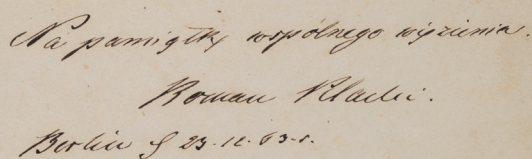 Na pamiątkę wspólnego więzienia.
Roman
Berlin 23.12.63 r.